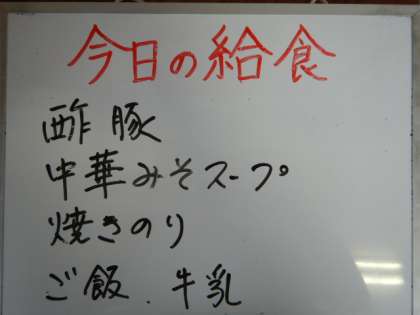 今日の給食
酢豚
中華みそスープ
焼きのり
ご飯．牛乳